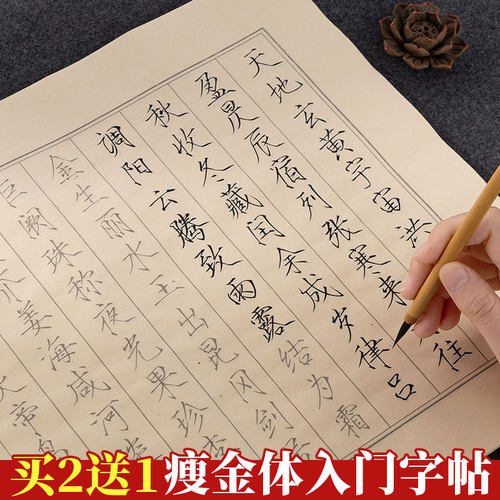 天地玄黄宇宙洪
盈昃辰宿列张寒来往
秋收冬藏闰余成岁律吕
调阳云腾致雨露结为霜
金生丽水玉出昆冈剑
巨阙珠称夜光果珍李
芥姜海咸河
帝
买2送1瘦金体入门字帖